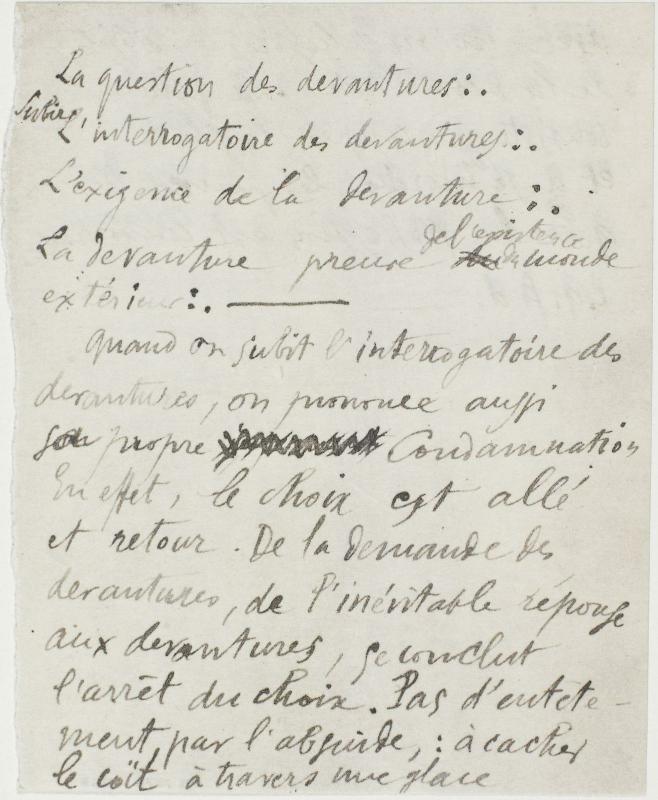 La question des devantures:.
Subir
L'interrogatoire des devantures:.
L'exigence de la devanture:.
de l'existence
La devanture preuve du monde
extérieur:. ———
Quand on subit l'interrogatoire des
devantures, on prononce aussi
sa propre Condamnation
En effet, le choix est allé
et retour. De la demande des
devantures, de l'inévitable réponse
aux devantures, se conclut
l'arrêt du choix. Pas d'entête-
ment, par l'absurde, : à cacher
le coït à travers une glace